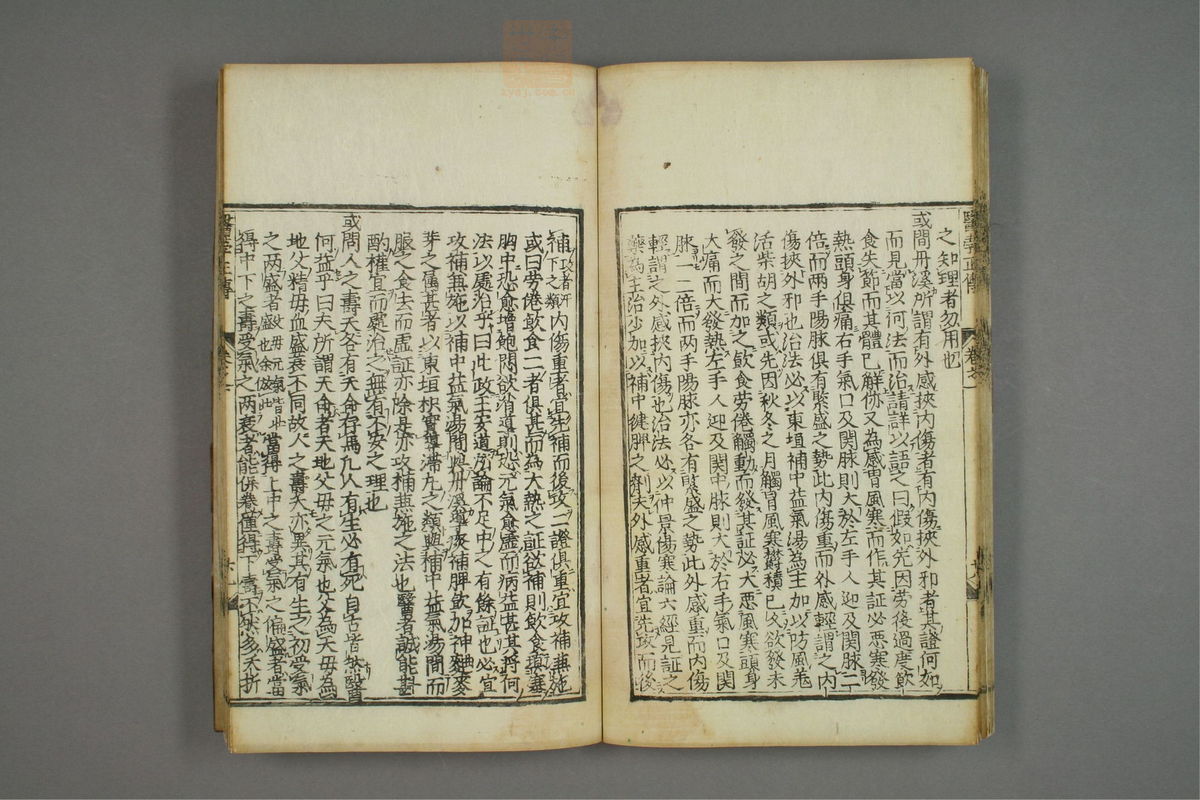 之知理者勿用也
或問丹溪所謂有外感挾內傷者有內傷挾外邪者其證何如
而見當以何法而治請詳以語之曰假如先因勞後過度飮
食失節而其體已解㑊又為感冒風寒而作其証必惡寒發
熱頭身俱痛右手氣口及関脉則大於左手人迎及関脉一二
倍而两手陽脉俱有緊盛之勢此内傷重而外感輕謂之内
傷挾外邪也治法必以東垣補中益氣湯為主加以防風羗
活柴胡之類或先因秋冬之月觸冒風寒欝積已久欲發未
發之間而加之飮食勞倦觸動而發其証必大悪風寒頭身
大痛而大發熱左手人迎及関中脉則大於右手氣口及関
脉一二倍而两手陽脉亦各有緊盛之勢此外感重而内傷
輕謂之外感挾内傷也治法必以仲景傷寒論六經見証之
藥為主治少加以補中健脾之劑夫外感重者宜先攻而後
補攻者汗下之類内傷重者宜先補而後攻二證俱重宜攻補兼施
或曰勞倦飮食二者俱甚而為大熱之証欲補則飮食填塞
胸中恐愈增飽悶欲消導則恐元氣愈虛而病益甚其將何
法以處治乎曰此政王安道所論不足中之有餘証也必宜
攻補兼施以補中益氣湯間與丹溪導痰補脾飮加神麯麥
芽之屬甚者以東垣枳實導滯丸之類與補中益氣湯間而
服之食去而虛証亦除是亦攻補兼施之法也醫者誠能斟
酌權宜而處治之無有不安之理也
或問人之壽夭各有天命存焉凡人有生必有死自古皆然醫
何益乎曰夫所謂天命者天地父母之元氣也父為天母為
地父精母血盛衰不同故人之壽夭亦異其有生之初受氣
之两盛者父母元氣皆壯盛也余倣此當得上中之壽受氣之偏盛者當
得中下之壽受氣之两衰者能保養僅得下壽不然多夭折
醫學正傳
卷之一
廿
醫學正傳
卷之一
廿一